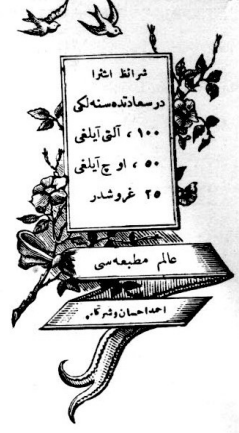 شرائط اشترا
درسعادتده سنه لکی
۱۰۰ ، آلتی آیلغی
۵۰ ، اوچ آیلغی
۲۵ غروشدر
عالم مطبعه سی
احمد احسان و شرکاسی